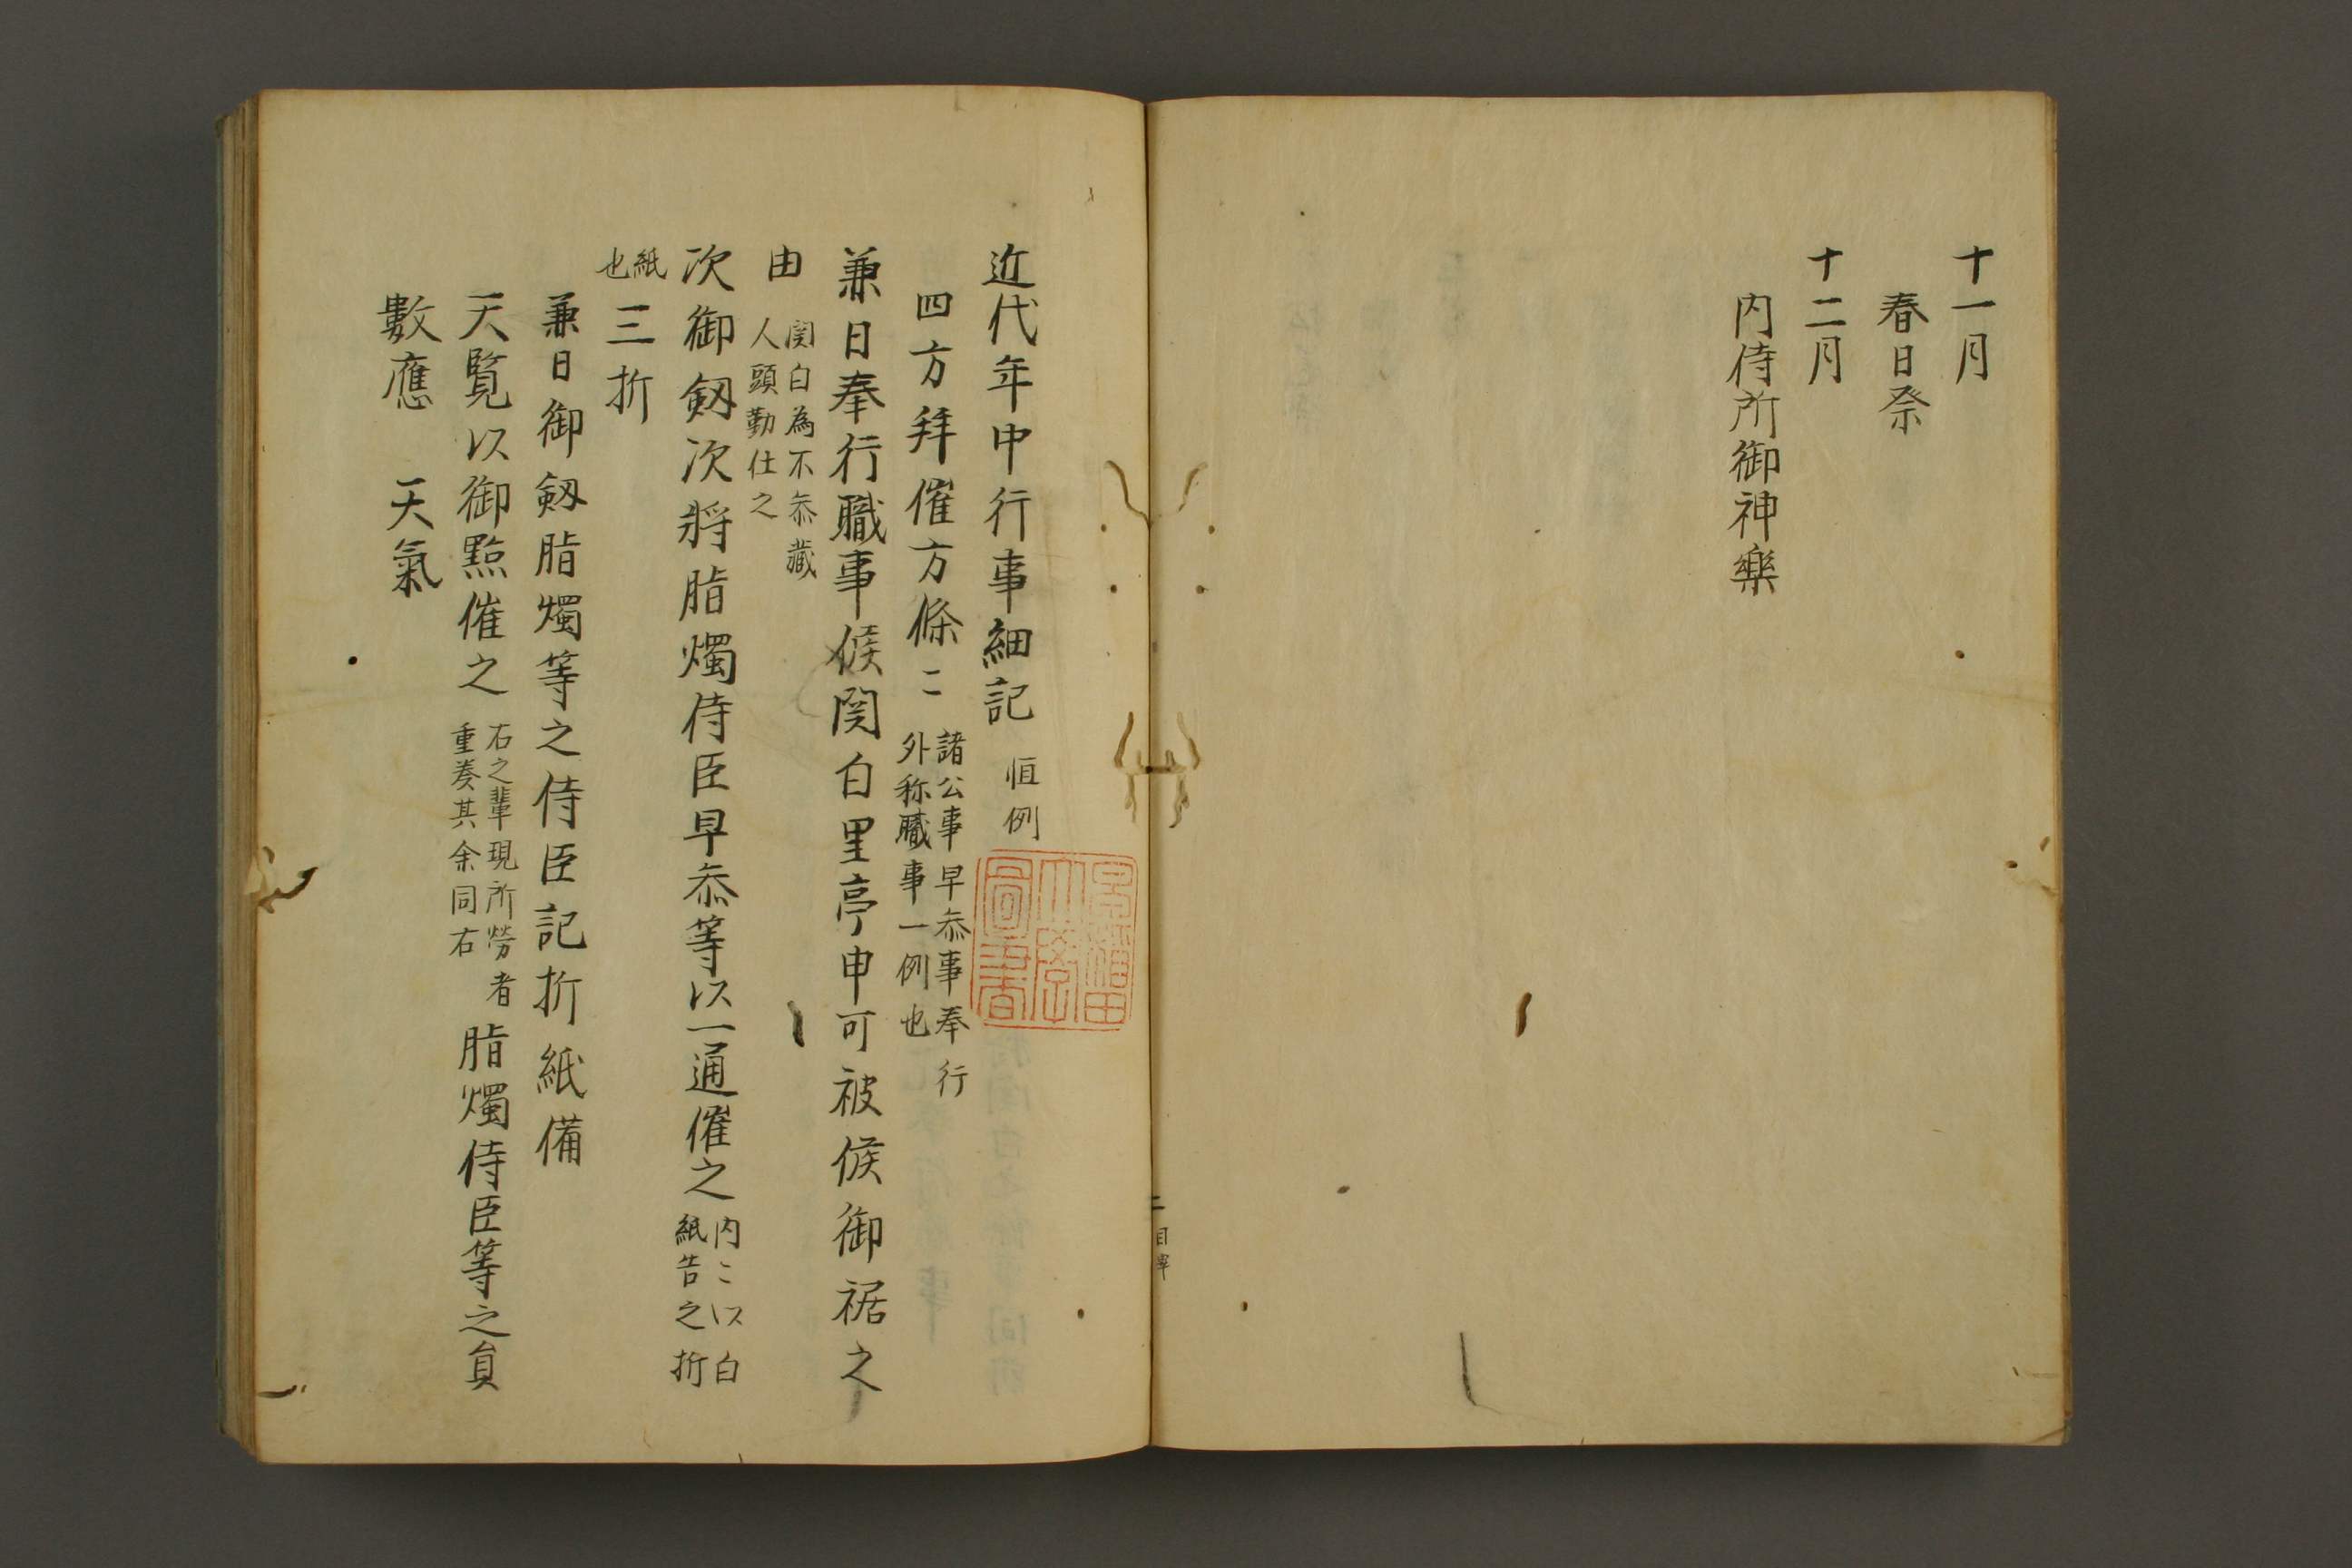 十一月
春日祭
十二月
内侍所御神樂
近代年中行事細記 恒例
早稲田大学圖書
四方拜催方條〻 諸公事早叅事奉行
外称職事一例也
兼日奉行職事候関白里亭申可被候御裾之
由 関白為不叅藏
人頭勤仕之
次御剱次將脂燭侍臣早叅等以一通催之 内〻以白
紙告之折
紙
也 三折
兼日御剱脂燭等之侍臣記折紙備
天覧以御點催之 右之輩現所勞者
重奏其余同右 脂燭侍臣等之負
數應 天氣